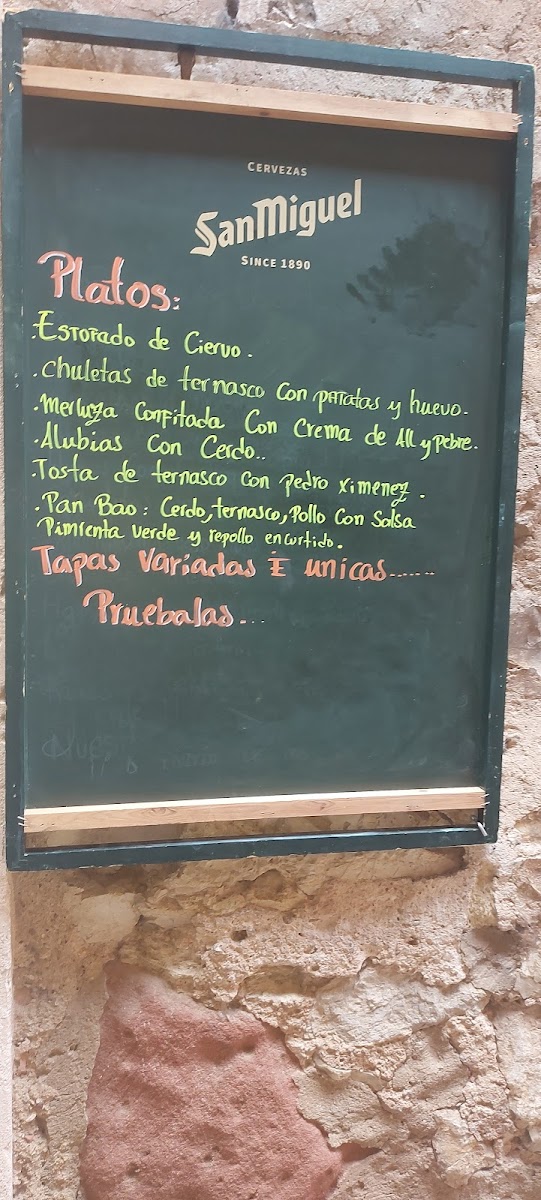 CERVEZAS
San Miguel
SINCE 1890
Platos:
.Estofado de Ciervo.
.Chuletas de ternasco con patatas y huevo.
.Merluza Confitada Con Crema de All y pebre.
.Alubias Con Cerdo..
.Tosta de ternasco con pedro ximenez.
.Pan Bao: Cerdo, ternasco, Pollo Con Salsa
Pimienta verde y repollo encurtido.
Tapas Variadas E unicas......
Pruebalas...